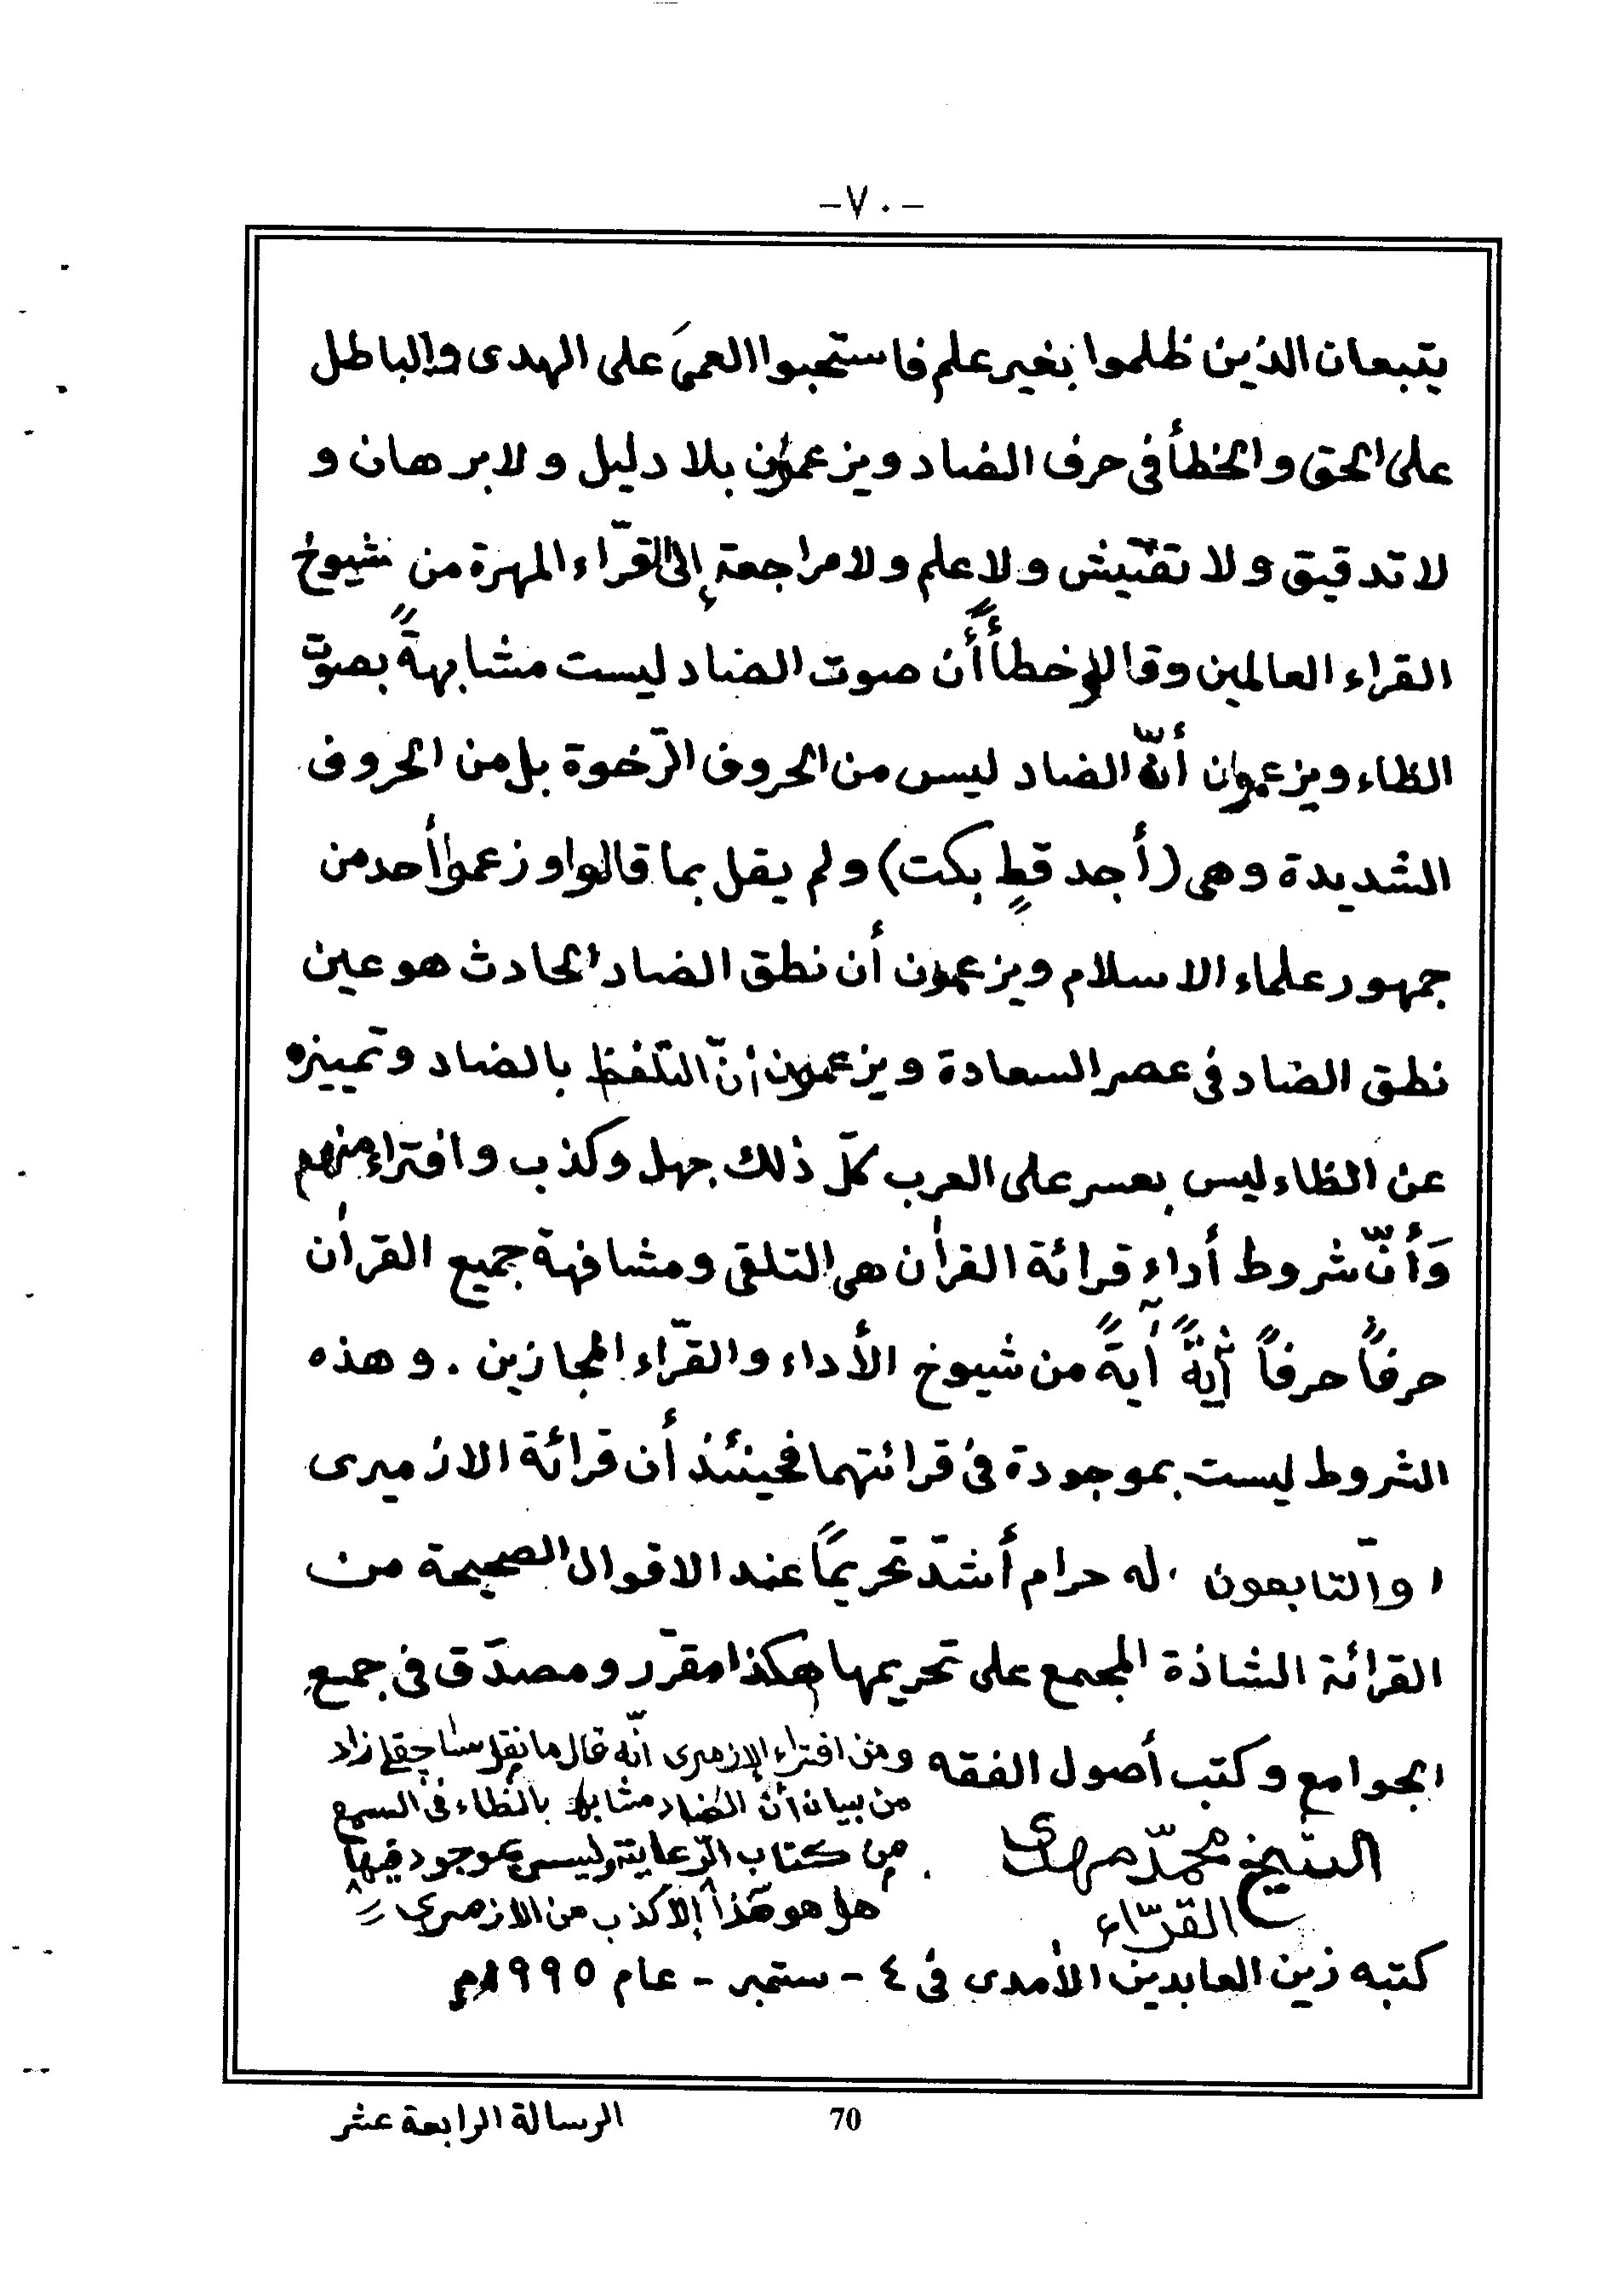 -٧٠-
يتبعان الذين ظلموا بغير علم فاستحبوا العمى على الهدى والباطل
على الحق والخطأ فى حرف الضاد ويزعمون بلا دليل ولا برهان و
لا تدقيق ولا تفتيش ولا علم ولا مراجعة إلى القرّاء المهرة من شيوخ
القراء العالمين وقالوا خطأً أن صوت الضاد ليست مشابهةً بصوت
الظاء ويزعمون أنّ الضاد ليس من الحروف الرّخوة بل من الحروف
الشديدة وهى (أجد قطٍ بكت) ولم يقل بما قالوا وزعموا أحد من
جمهور علماء الاسلام ويزعمون أن نطق الضاد الحادث هو عين
نطق الضاد فى عصر السعادة ويزعمون أنّ التلفظ بالضاد وتمييزه
عن الظاء ليس بعسر على العرب كلّ ذلك جهل وكذب وافتراء منهم
وَأنّ شروط أداء قرائة القرأن هى التلقى ومشافهة جميع القرأن
حرفاً حرفاً أيةً أيةً من شيوخ الأداء والقرّاء المجازين . وهذه
الشروط ليست بموجودة فى قرائتهما فحينئذ أن قرائة الازميرى
والتابعون له حرام أشدّ تحريماً عند الاقوال الصحيحة من
القرائة الشاذة المجمع على تحريمها هكذا مقرّر ومصدّق فى جمع
الجوامع وكتب أصول الفقه
ومن افتراء الازميرى أنّه قال ما نقل ساچقلى زاد
من بيان أن الضاد مشابه بالظاء فى السمع
من كتاب الرّعاية وليس بموجود فيها
هل هو هذا إلا كذب من الازميرى
الشيخ محمّد مهدى
القرّاء
كتبه زين العابدين الأمدى فى ٤ - ستمبر - عام ١٩٩٥م
70
الرسالة الرابعة عشر